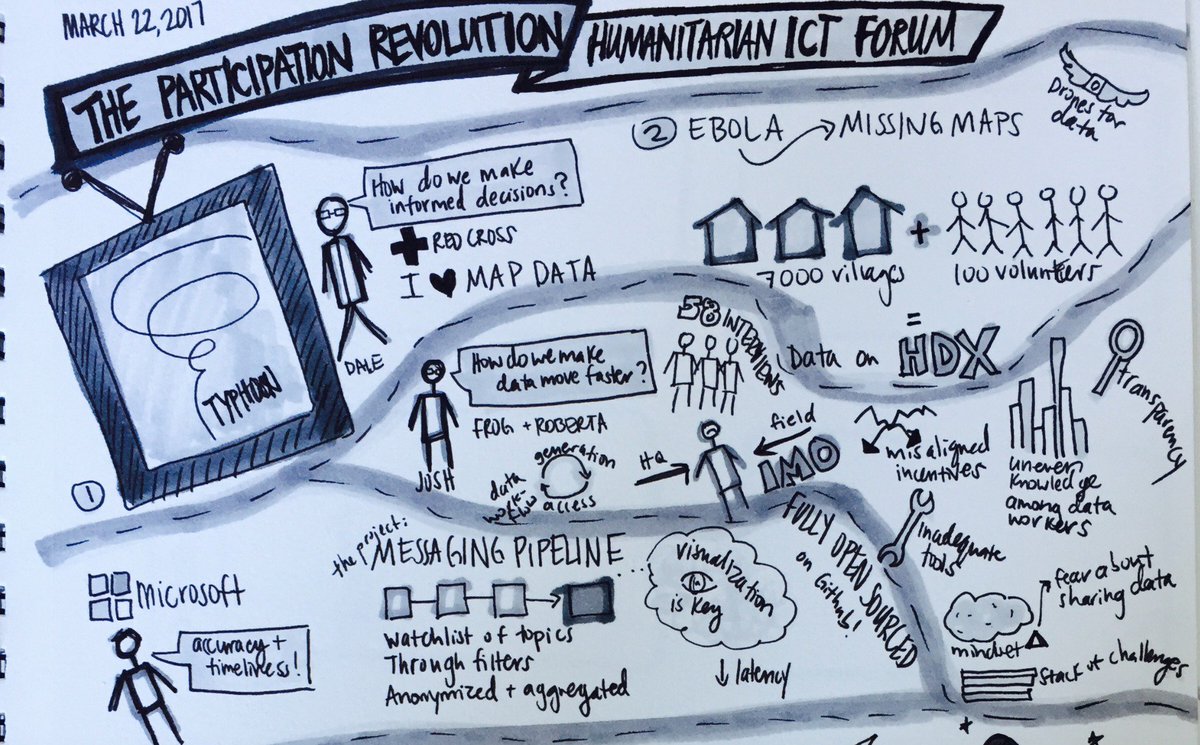 MARCH 22, 2017
THE PARTICIPATION REVOLUTION
HUMANITARIAN ICT FORUM
Drones for
data
② EBOLA → MISSING MAPS
How do we make
informed decisions?
RED CROSS
I ♥ MAP DATA
DALE
TYPHOON
①
7000 villages
+
100 volunteers
=
Data on HDX
58 INTERVIEWS
How do we make
data move faster?
FROG + ROBERTA
JOSH
data
work-
flow
generation
access
HQ
field
IMO
misaligned
incentives
uneven
knowledge
among data
workers
transparency
FULLY OPEN SOURCED
on GitHub!
inadequate
tools
fear about
sharing data
mindset
Stack of challenges
the project:
MESSAGING PIPELINE
watchlist of topics
Through filters
Anonymized + aggregated
visualization
is key
↓ latency
microsoft
accuracy +
timeliness!